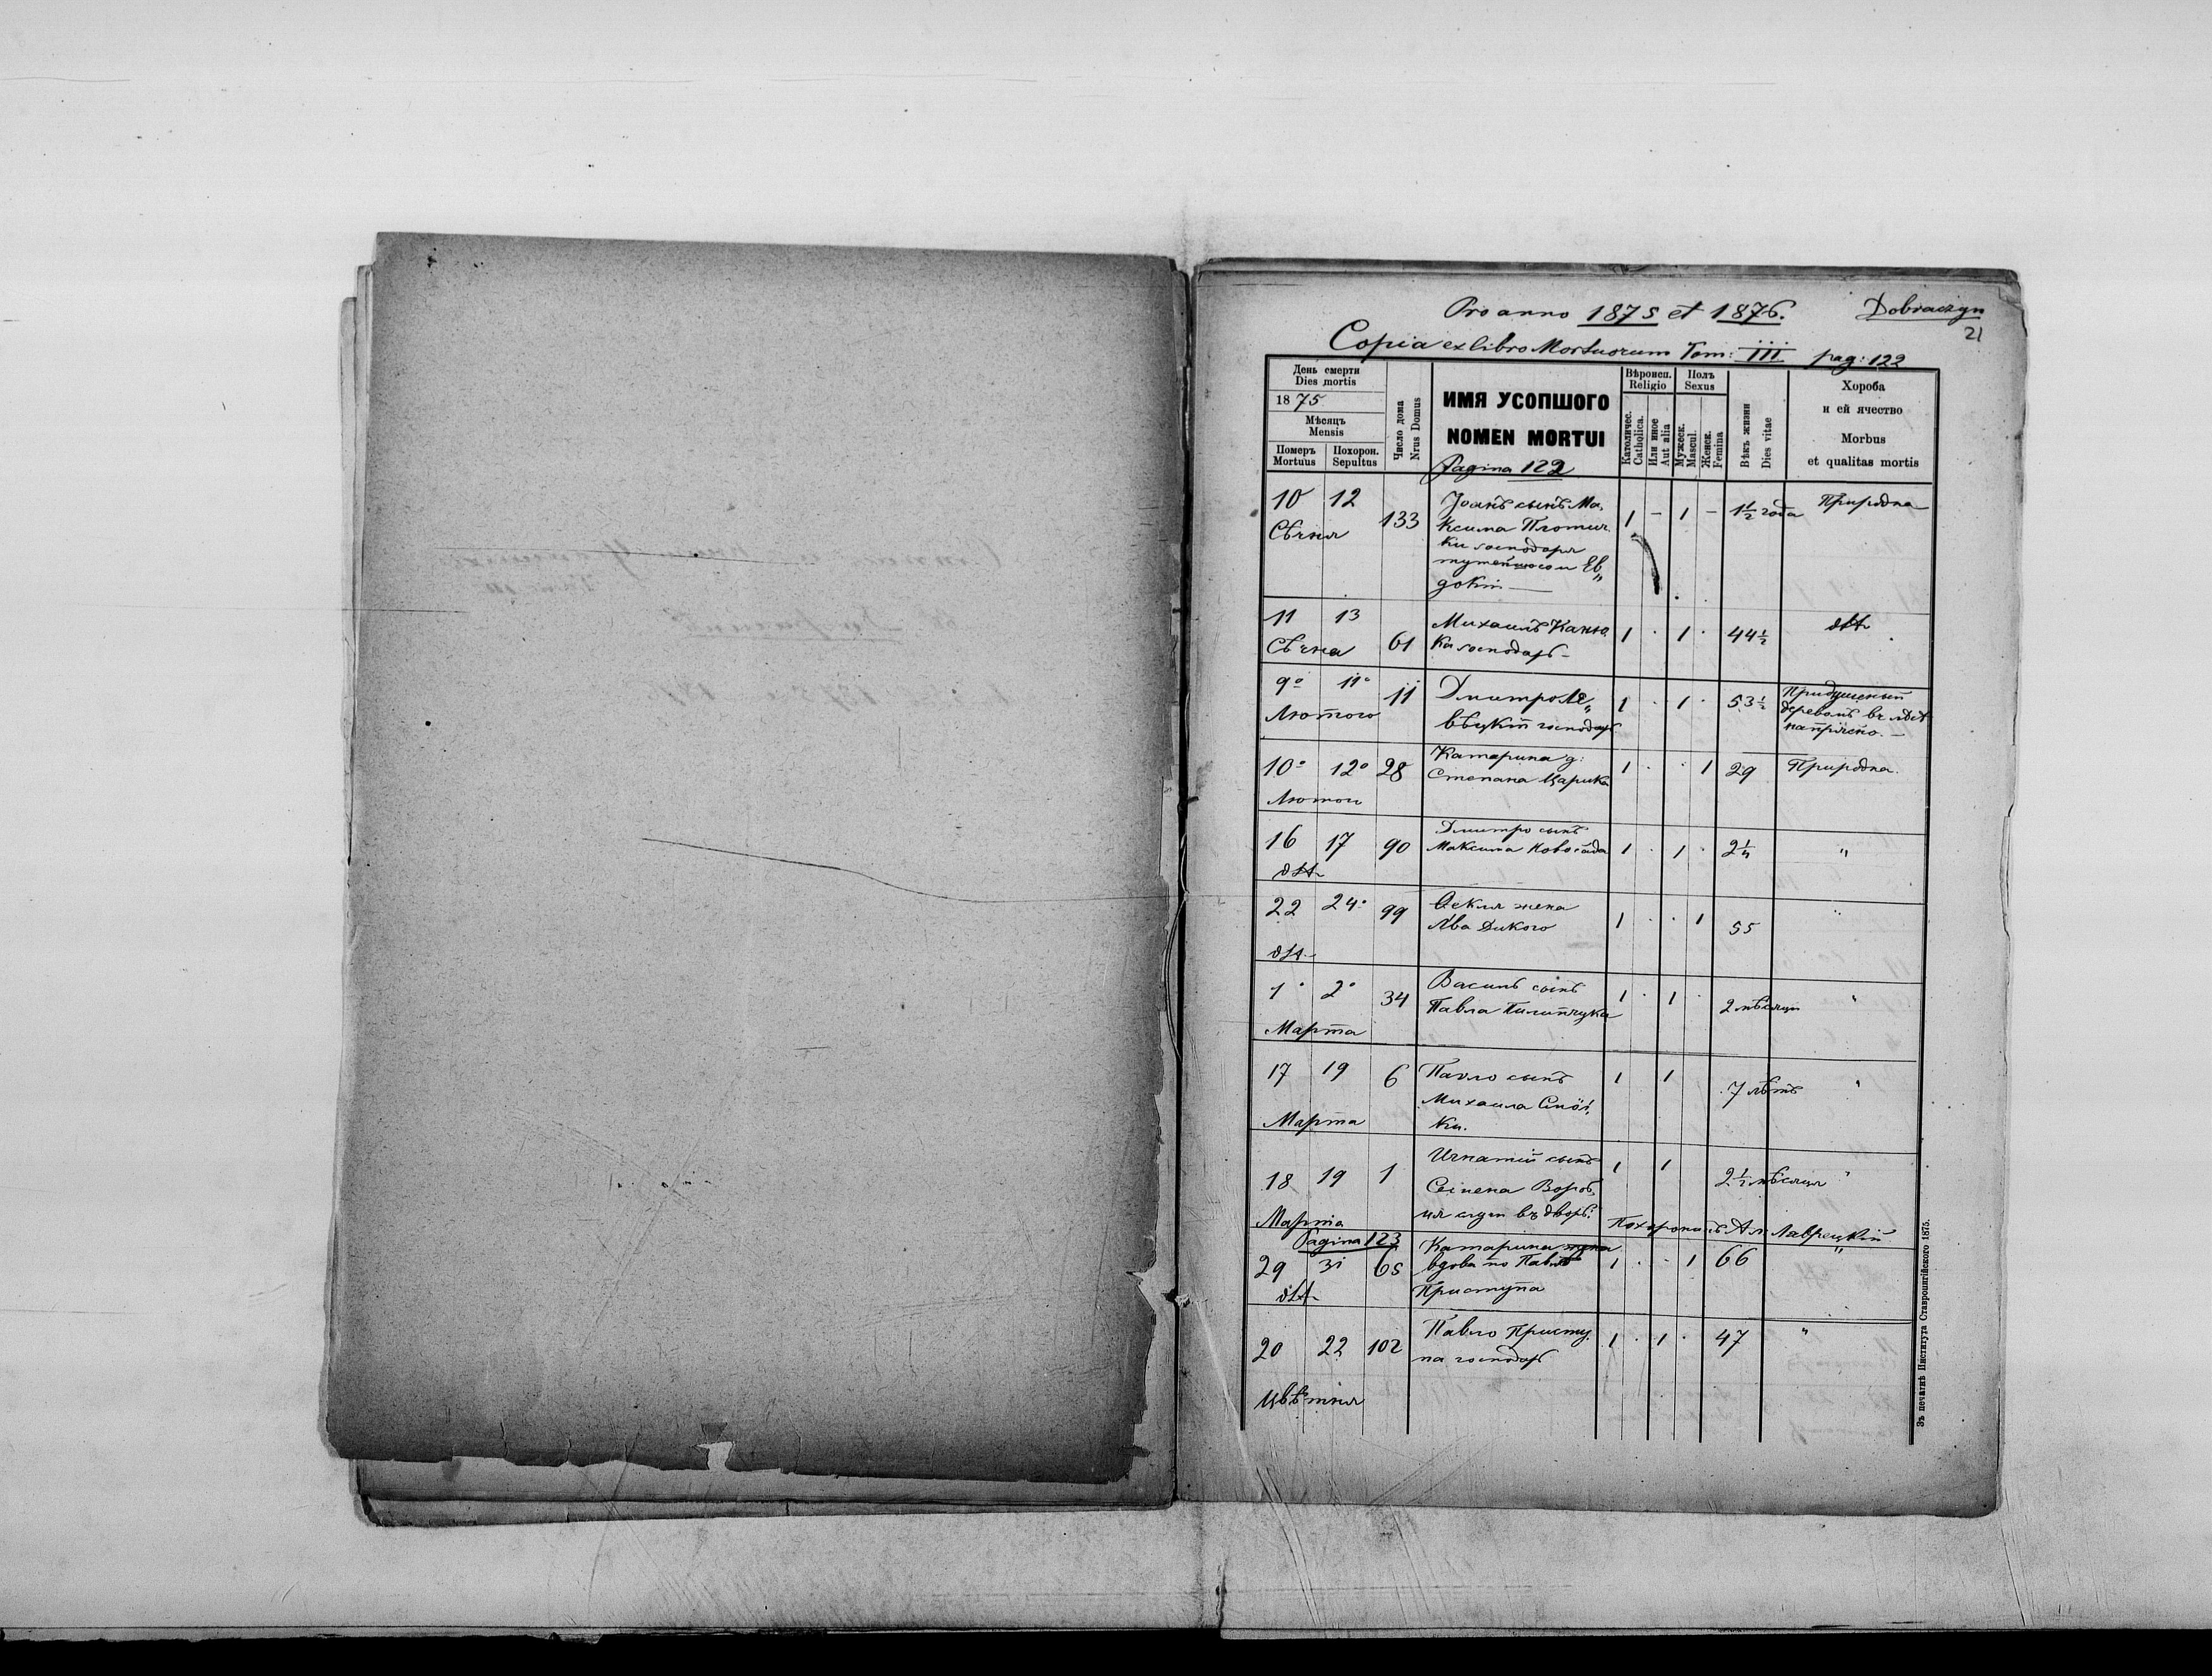 Pro anno 1875 et 1876. Dobraczyn
21
Copia ex libro Mortuorum Tom: III pag: 122
День смерти
Dies mortis
1875
Мѣсяцъ
Mensis
Померъ Похорон.
Mortuus Sepultus
Число дома
Nrus Domus
ИМЯ УСОПШОГО
NOMEN MORTUI
Pagina 122
Вѣроисп.
Religio
Католичес.
Catholica.
Или иное
Aut alia
Полъ
Sexus
Мужеск.
Mascul.
Женск.
Femina
Вѣкъ жизни
Dies vitae
Хороба
и ей ячество
Morbus
et qualitas mortis
10 12 133 Іоанъ сынъ Ма, 1 – 1 – 1½ года Природна
Сѣчня ксима
ки господаря
тутейшого и Ев„
докіи —
11 13 61 Михаилъ Каню, 1 · 1 · 44½ dtt
Сѣчня ка господарь –
9° 11° 11 Дмитро Ле„ 1 · 1 · 53½ Придушеный
Лютого вѣцкій господарь деревомъ въ лѣсѣ
10° 12° 28 Катарина д: 1 · · 1 29 Природна.
Степана Царика
Лютого
16 17 90 Дмитро сынъ 1 · 1 · 2¼ "
Максима Новосада
dtt
22 24· 99 Ѳекля жена 1 · · 1 55 "
Лва Дикого
dtt
1° 2° 34 Василь сынъ 1 · 1 · 2 мѣсяци "
Павла Пилипчука
Марта
17 19 6 Павло сынъ 1 1 7 лѣтъ "
Михаила
Марта ки.
18 19 1 Игнатій сынъ 1 1 2½ мѣсяця "
Семена Вороб,
Марта ия слуги въ дворѣ. Похоронилъ Ал. Лаврецкій
Pagina 123
29 31 65 Катарина жена 1 · · 1 66 "
вдова по Павлѣ
dtt Приступа
20 22 102 Павло Присту, 1 · 1 · 47 "
па господарь
Цвѣтня
Зъ печатнѣ Института Ставропигійского 1875.